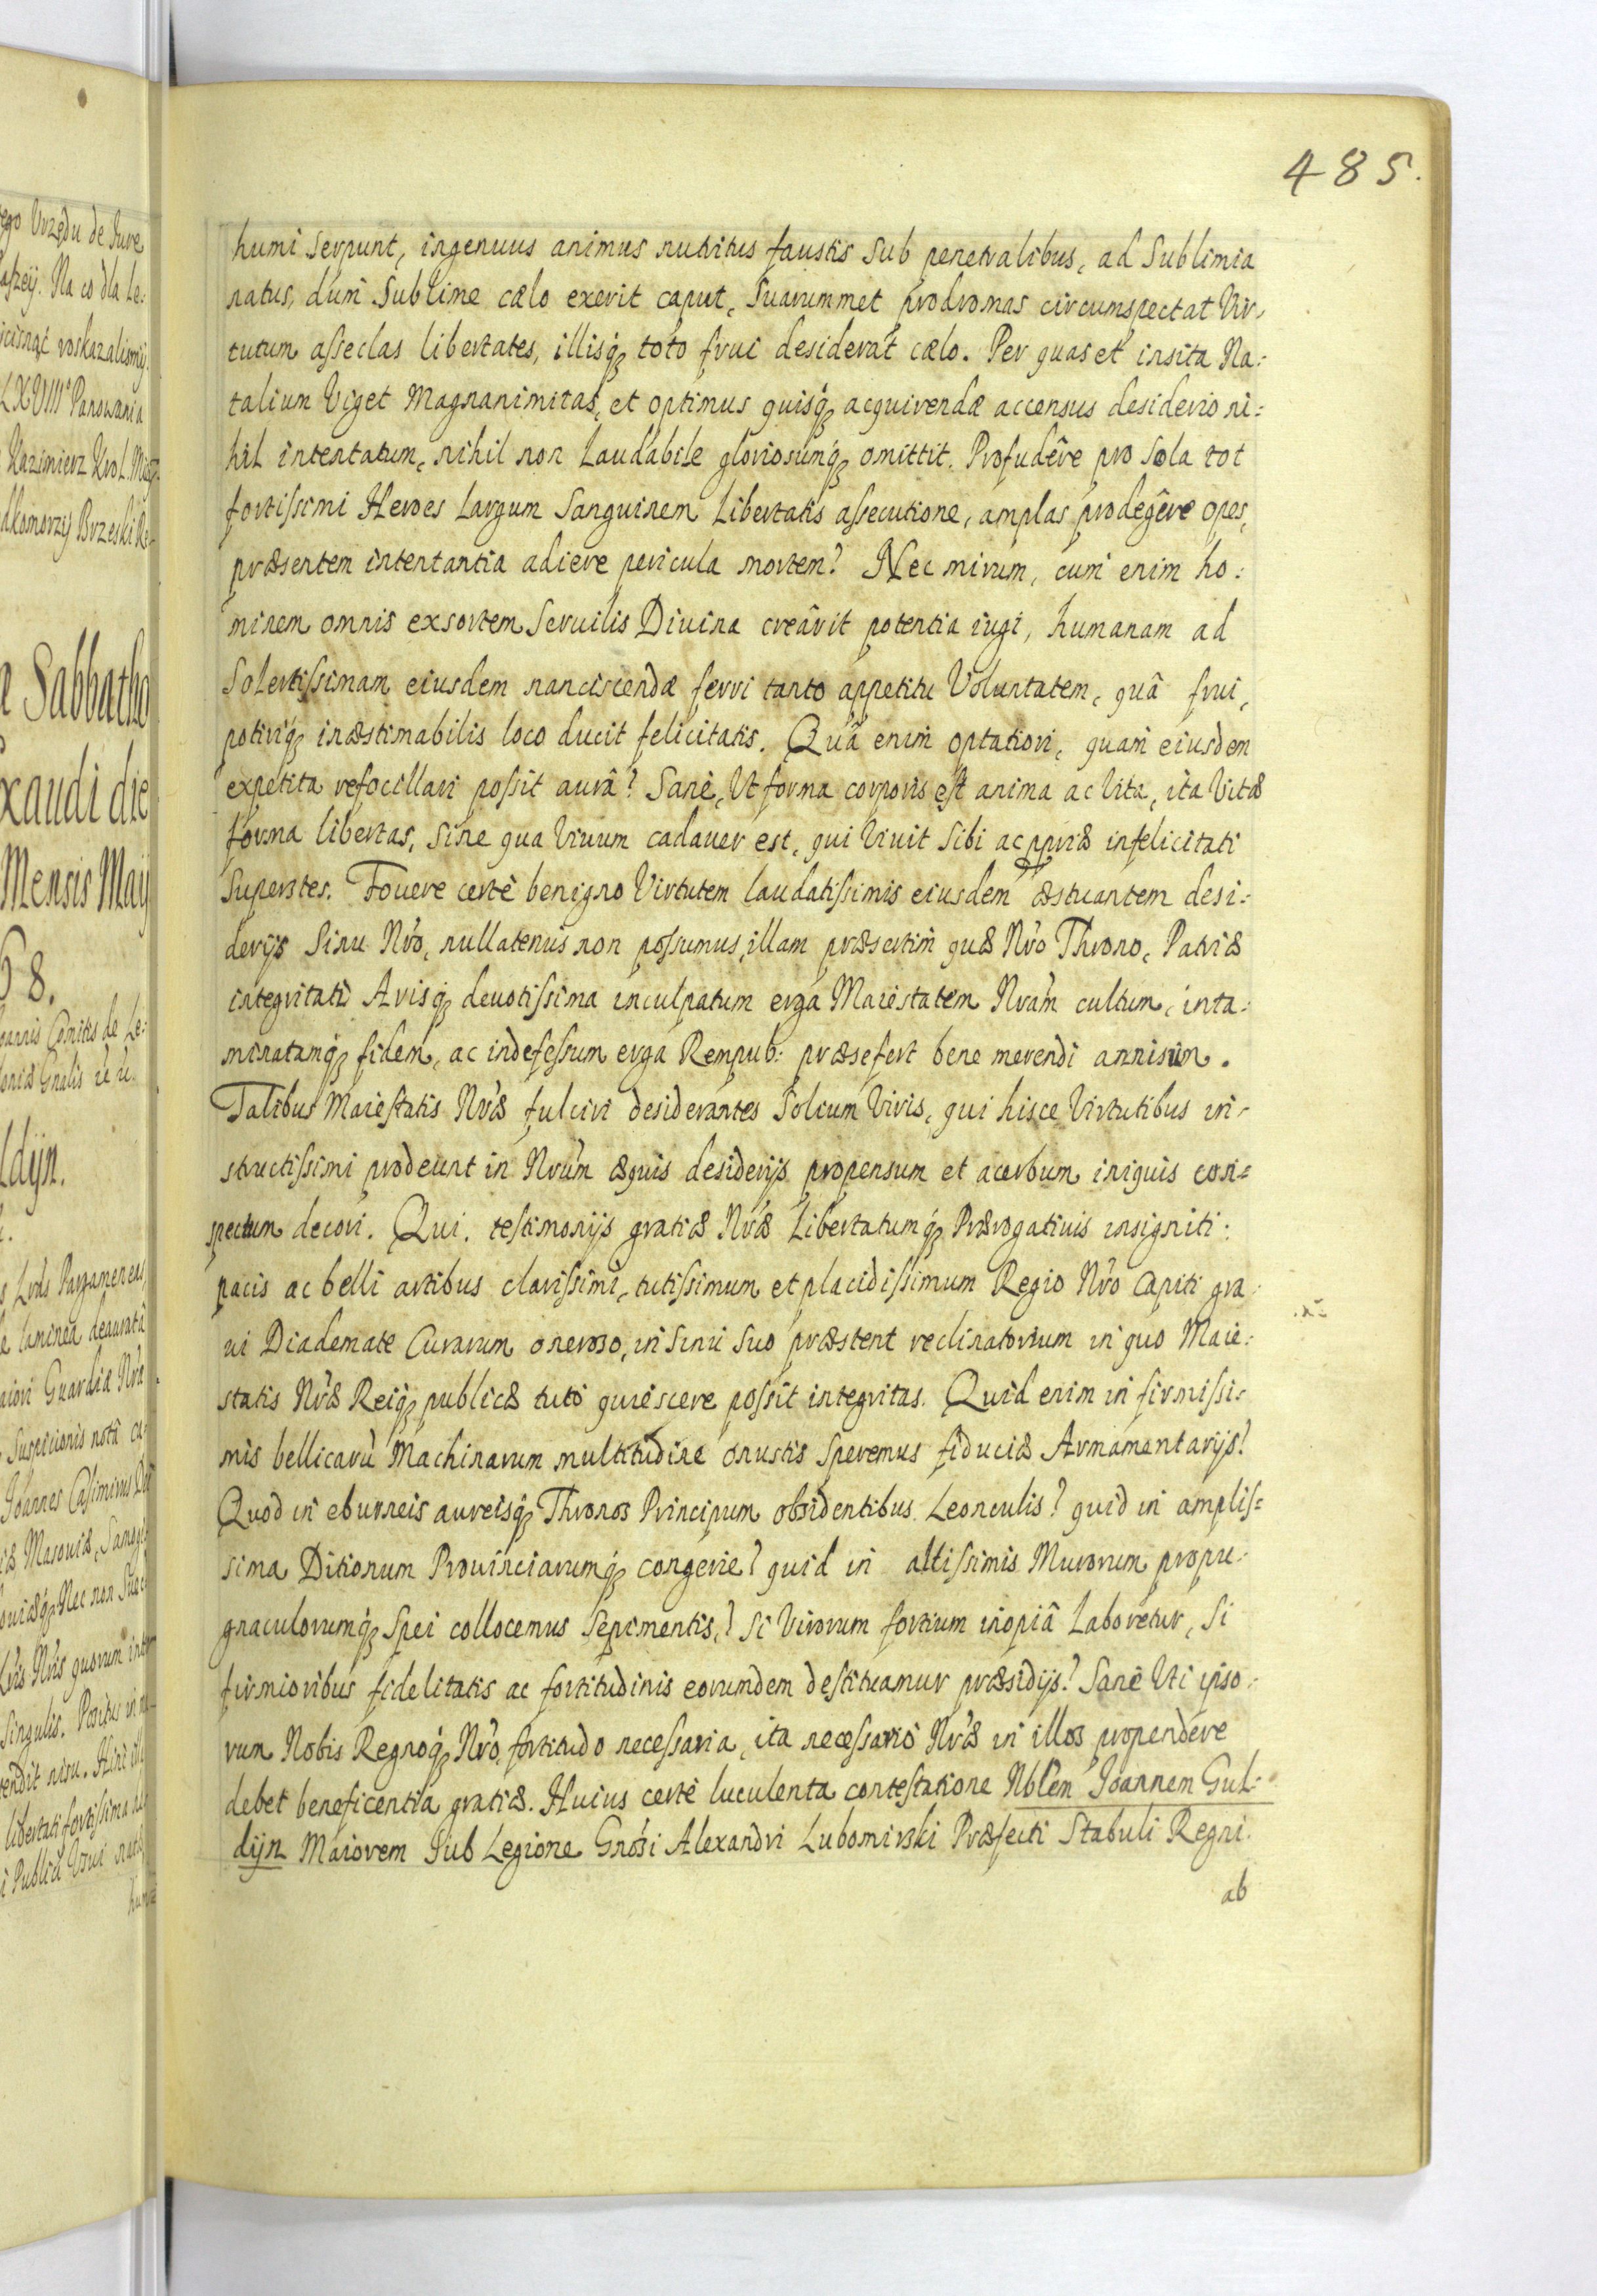 485.
humi serpunt, ingenuus animus nutritus faustis sub penetralibus, ad Sublimia
natus, dum Sublime cælo exerit caput, Suarummet prodromas circumspectat Vir-
tutum asseclas libertates, illisq; toto frui desiderat cælo. Per quas et insita Na:
talium Viget Magnanimitas, et optimus quisq; acquirendæ accensus desiderio ni:
hil intentatum, nihil non Laudabile gloriosumq; omittit. Profudêre pro Sola tot
fortissimi Heroes Largum Sanguinem Libertatis assecutione, amplas prodegêre opes,
præsentem intentantia adiere pericula mortem? Nec mirum, cum enim ho:
minem omnis exsortem Seruilis Diuina creârit potentia iugi, humanam ad
Solertissimam eiusdem nanciscendæ ferri tanto appetitu Voluntatem, quâ frui,
potiriq; inæstimabilis loco ducit felicitatis. Quâ enim optatiori, quam eiusdem
expetita refocillari possit aurâ? Sanè, Ut forma corporis est anima ac Uita, ita Uitæ
forma libertas, Sine qua Uiuum cadauer est, qui Uiuit Sibi ac ppriæ infelicitati
Superstes. Fouere certè benigno Virtutem laudatissimis eiusdem æstuantem desi:
derijs Sinu Nro, nullatenus non possumus, illam præsertim quæ Nro Throno, Patriæ
integritati Arisq; deuotissima inculpatum erga Maiestatem Nram cultum, inta:
minatamq; fidem, ac indefessum erga Rempub: præsefert bene merendi annisum.
Talibus Maiestatis Nræ fulciri desiderantes Solium Viris, qui hisce Virtutibus in-
structissimi prodeunt in Nrum æquis desiderijs propensum et acerbum iniquis con=
spectum decori. Qui. testimonijs gratiæ Nræ Libertatumq; Prærogatiuis insigniti:
pacis ac belli artibus clarissimi, tutissimum et placidissimum Regio Nro Capiti gra:
ui Diademate Curarum oneroso, in Sinu Suo præstent reclinatorium in quo Maie:
statis Nræ Reiq; publicæ tutò quiescere possit integritas. Quid enim in firmissi:
mis bellicarũ Machinarum multitudine onustis Speremus fiduciæ Armamentarijs?
Quod in eburneis aureisq; Thronos Principum obsidentibus Leonculis? quid in amplis=
sima Ditionum Prouinciarumq; congerie? quid in altissimis Murorum propu:
gnaculorumq; Spei collocemus Sepimentis,? Si Virorum fortium inopiâ Laboretur, Si
firmioribus fidelitatis ac fortitudinis eorumdem destituamur præsidijs? Sanè Uti ipso:
rum Nobis Regnoq; Nro, fortitudo necessaria, ita necessariò Nræ in illos propendere
debet beneficentia gratiæ. Huius certè luculenta contestatione Nblem Joannem Gul:
dijn Maiorem Sub Legione Gnosi Alexandri Lubomirski Præfecti Stabuli Regni.
ab